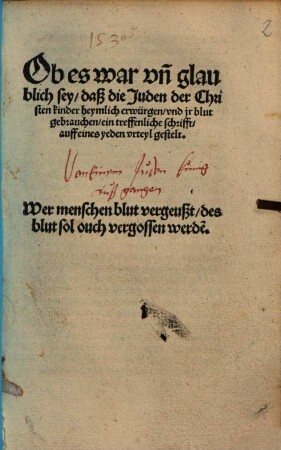 1530
2
Ob es war vñ glau
blich sey/ daß die Juden der Chri
sten kinder heymlich erwürgen/ vnd jr blut
gebrauchen/ ein treffenliche schrifft/
auff eines yeden vrteyl gestelt.
Juden
auß gangen
Wer menschen blut vergeußt/ des
blut sol ouch vergossen werdẽ.